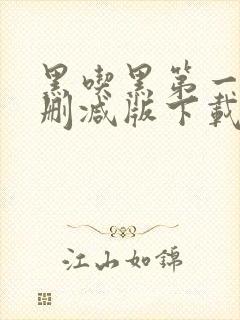 黑吃黑第一
删减版下载
江山如锦